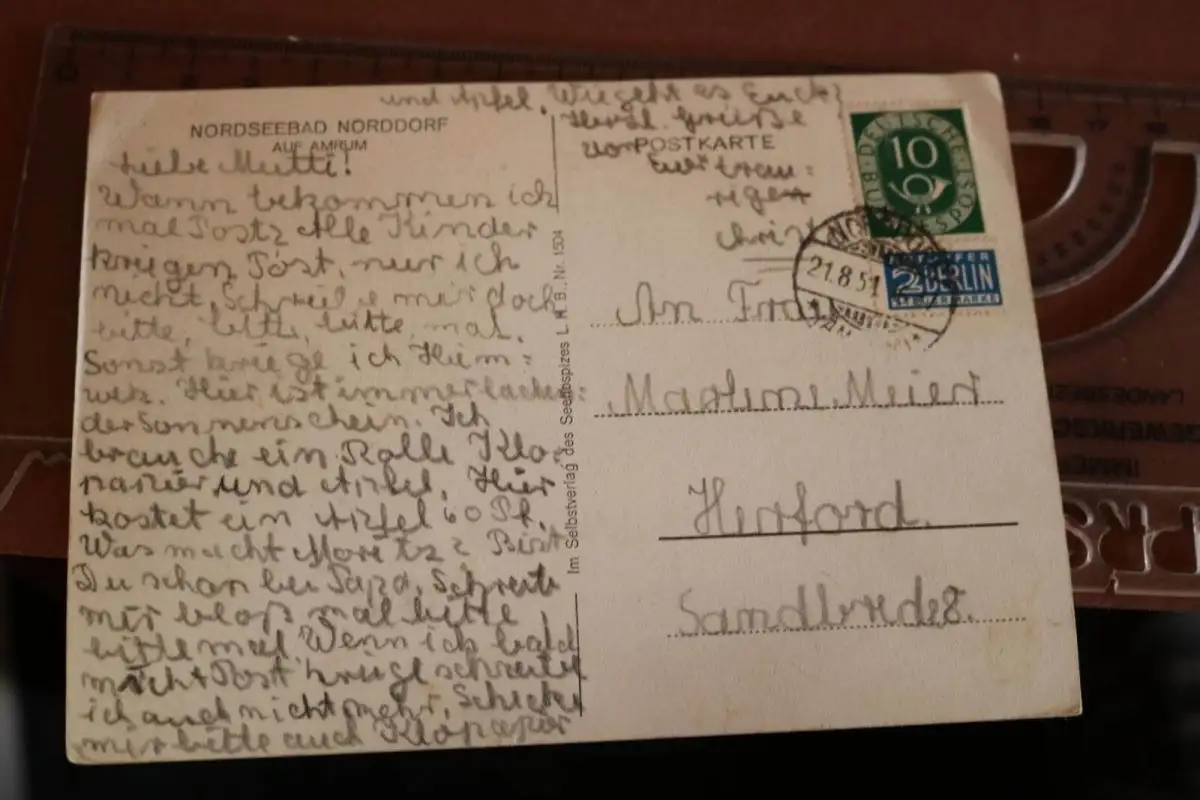 NORDSEEBAD NORDDORF
AUF AMRUM
Liebe Mutti!
Wann bekommen ich
mal Post? Alle Kinder
kriegen Post, nur ich
nicht. Schreibe mir doch
bitte, bitte, bitte, mal.
Sonst kriege ich Heim=
weh. Hier ist immer lachen=
der Sonnenschein. Ich
brauche ein Rolle Klo-
papier und Apfel. Hier
kostet ein Apfel 60 Pf.
Was macht Moritz? Bist
Du schon bei Papa. Schreibe
mir bloß mal bitte,
bitte mal. Wenn ich bald
nicht Post kriege schreibe
ich auch nicht mehr. Schicke
mir bitte auch Klopapier
und Apfel. Wie geht es Euch?
Herzl. Grüße
von
Euer trau=
riger
Christ
POSTKARTE
Im Selbstverlag des Seehospizes L. H. B., Nr. 1504
DEUTSCHE BUNDESPOST
10
2 BERLIN
STEUERMARKE
21.8.51
An Frau
Marlene Meier
Herford.
Sandbrede 8.